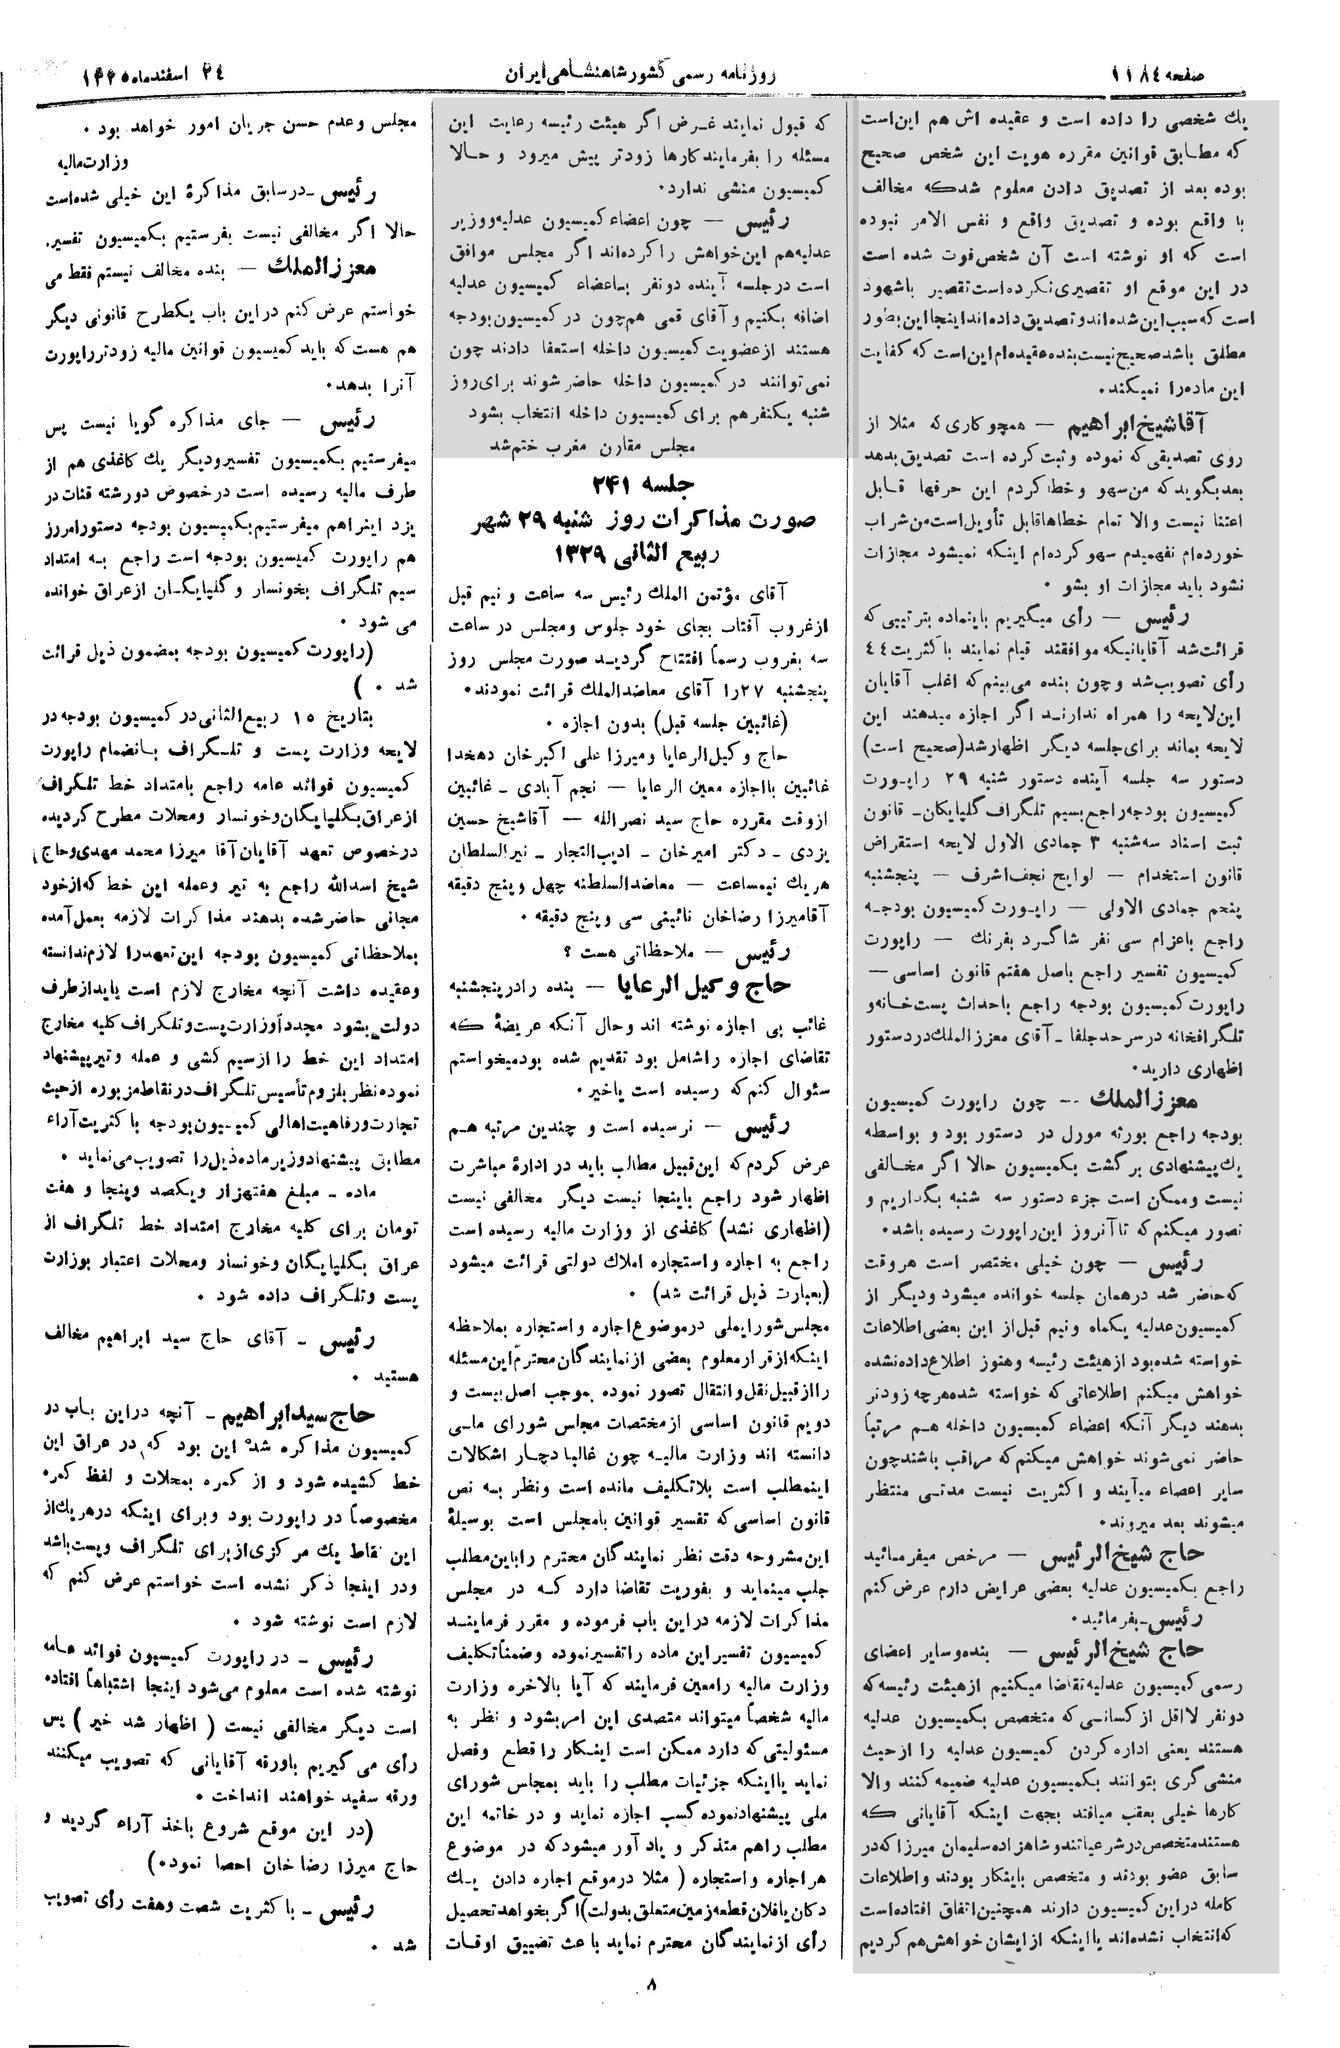 صفحه ۱۱۸٤
روزنامه رسمی کشور شاهنشاهی ایران
۲٤ اسفندماه ۱۳۲۵
یك شخصی را داده است و عقیده اش هم این‌است
که مطابق قوانین مقرره هویت این شخص صحیح
بوده بعد از تصدیق دادن معلوم شدکه مخالف
با واقع بوده و تصدیق واقع و نفس الامر نبوده
است که او نوشته است آن شخص فوت شده است
در این موقع او تقصیری نکرده‌است‌تقصیر باشهود
است که سبب‌این‌شده‌اند‌و‌تصدیق داده‌اند‌اینجا‌این‌بطور
مطلق باشد‌صحیح‌نیست‌بنده‌عقیده‌ام‌این‌است که کفایت
این ماده‌را نمیکند.
آقاشیخ ابراهیم — همچو کاری که مثلا از
روی تصدیقی که نموده و ثبت کرده است تصدیق بدهد
بعد‌بگوید‌که من‌سهو و خطا کردم این حرفها قابل
اعتنا نیست والا تمام خطاها‌قابل تأویل‌است‌من‌شراب
خورده‌ام نفهمیدم سهو کرده‌ام اینکه نمیشود مجازات
نشود باید مجازات او بشو .
رئیس — رأی میگیریم باینماده بترتیبی که
قرائت‌شد آقایانیکه موافقند قیام نمایند با کثریت ٤٤
رأی تصویب‌شد و چون بنده می‌بینم‌که اغلب آقایان
این‌لایحه را همراه ندارند اگر اجازه میدهند این
لایحه بماند برای‌جلسه دیگر اظهارشد(صحیح است)
دستور سه جلسه آینده دستور شنبه ۲۹ راپورت
کمیسیون بودجه‌راجع‌بسیم تلگراف گلپایکان- قانون
ثبت اسناد سه‌شنبه ۳ جمادی الاول لایحه استقراض
قانون استخدام — لوایح نجف‌اشرف — پنجشنبه
پنجم جمادی الاولی — راپورت کمیسیون بودجه
راجع باعزام سی نفر شاگرد بفرنك — راپورت
کمیسیون تفسیر راجع باصل هفتم قانون اساسی —
راپورت‌کمیسیون بودجه راجع باحداث پست‌خانه‌و
تلگرافخانه در‌سرحد‌جلفا - آقای معزز‌الملك‌در‌دستور
اظهاری دارید.
معزز‌الملك — چون راپورت کمیسیون
بودجه راجع بورثه مورل در دستور بود و بواسطه
یك‌پیشنهادی بر‌گشت بکمیسیون حالا اگر مخالفی
نیست و‌ممکن است جزء دستور سه شنبه بگذاریم و
تصور میکنم‌که تا‌آنروز این‌راپورت رسیده باشد.
رئیس — چون خیلی مختصر است هروقت
که‌حاضر شد درهمان جلسه خوانده میشود ودیگر از
کمیسیون‌عدلیه یکماه ونیم قبل‌از این بعضی‌اطلاعات
خواسته شده‌بود از‌هیئت رئیسه و‌هنوز اطلاع‌داده‌نشده
خواهش میکنم اطلاعاتی که خواسته شده‌هرچه زودتر
بدهند دیگر آنکه اعضاء کمیسیون داخله هم مرتباً
حاضر نمی‌شوند خواهش میکنم‌که مراقب باشند‌چون
سایر اعضاء میآیند و اکثریت نیست مدتی منتظر
میشوند بعد میروند.
حاج شیخ‌الرئیس — مرخص میفرمائید
راجع بکمیسیون عدلیه بعضی عرایض دارم عرض کنم
رئیس-بفرمائید.
حاج شیخ‌الرئیس — بنده‌و‌سایر اعضای
رسمی کمیسیون عدلیه‌تقاضا میکنیم از‌هیئت رئیسه‌که
دونفر لااقل از کسانی‌که متخصص بکمیسیون عدلیه
هستند یعنی اداره کردن کمیسیون عدلیه را از‌حیث
منشی گری بتوانند بکمیسیون عدلیه ضمیمه کنند والا
کارها خیلی بعقب میافتد بجهت اینکه آقایانی که
هستند‌متخصص‌در‌شرعیاتند‌و‌شاهزاده سلیمان میرزا که‌در
سابق عضو بودند و متخصص باینکار بودند و‌اطلاعات
کامله در‌این کمیسیون دارند همچنین‌اتفاق افتاده‌است
که‌انتخاب نشده‌اند یا‌اینکه از‌ایشان خواهش‌هم کردیم
که قبول نمایند غرض اگر هیئت رئیسه رعایت این
مسئله را بفرمایند‌کارها زودتر پیش میرود و حالا
کمیسیون منشی ندارد.
رئیس — چون اعضاء کمیسیون عدلیه‌و‌وزیر
عدلیه‌هم این‌خواهش را کرده‌اند اگر مجلس موافق
است در‌جلسه آینده دونفر باعضاء کمیسیون عدلیه
اضافه بکنیم و آقای قمی هم‌چون در کمیسیون‌بودجه
هستند از‌عضویت کمیسیون داخله استعفا دادند چون
نمی‌توانند در کمیسیون داخله حاضر شوند برای‌روز
شنبه یکنفر‌هم برای کمیسیون داخله انتخاب بشود
مجلس مقارن مغرب ختم‌شد
جلسه ۲٤۱
صورت مذاکرات روز شنبه ۲۹ شهر
ربیع الثانی ۱۳۲۹
آقای مؤتمن الملك رئیس سه ساعت و نیم قبل
از‌غروب آفتاب بجای خود جلوس و‌مجلس در ساعت
سه بغروب رسماً افتتاح گردید صورت مجلس روز
پنجشنبه ۲۷‌را آقای معاضد‌الملك قرائت نمودند.
(غائبین جلسه قبل) بدون اجازه .
حاج وکیل‌الرعایا و‌میرزا علی اکبر‌خان دهخدا
غائبین با‌اجازه معین الرعایا — نجم آبادی - غائبین
از‌وقت مقرره حاج سید نصر‌الله — آقاشیخ حسین
یزدی - دکتر امیرخان - ادیب‌التجار - نیر‌السلطان
هریك نیمساعت — معاضد‌السلطنه چهل و‌پنج دقیقه
آقامیرزا رضاخان نائینی سی و‌پنج دقیقه .
رئیس — ملاحظاتی هست ؟
حاج وکیل الرعایا — بنده رادرپنجشنبه
غائب بی اجازه نوشته اند وحال آنکه عریضهٔ که
تقاضای اجازه را‌شامل بود تقدیم شده بود‌میخواستم
سئوال کنم‌که رسیده است یا‌خیر .
رئیس — نرسیده است و چندین مرتبه هم
عرض کردم‌که این‌قبیل مطالب باید در ادارهٔ مباشرت
اظهار شود راجع باینجا نیست دیگر مخالفی نیست
(اظهاری نشد) کاغذی از وزارت مالیه رسیده است
راجع به اجاره و‌استجاره املاك دولتی قرائت میشود
(بعبارت ذیل قرائت شد) .
مجلس‌شورایملی در‌موضوع‌اجاره و‌استجاره بملاحظه
اینکه‌از‌قرار‌معلوم بعضی از‌نمایندگان محترم‌این‌مسئله
را‌از‌قبیل‌نقل‌و‌انتقال تصور نموده بموجب اصل‌بیست و
دویم قانون اساسی از‌مختصات مجلس شورای ملی
دانسته اند وزارت مالیه چون غالبا دچار اشکالات
اینمطلب است بلاتکلیف مانده است و‌نظر به نص
قانون اساسی که تفسیر قوانین با‌مجلس است بوسیلهٔ
این‌مشروحه دقت نظر نمایندگان محترم را‌باین‌مطلب
جلب مینماید و بفوریت تقاضا دارد که در مجلس
مذاکرات لازمه در‌این باب فرموده و مقرر فرمایند
کمیسیون تفسیر‌این ماده را‌تفسیر‌نموده و‌ضمناً‌تکلیف
وزارت مالیه رامعین فرمایند که آیا بالاخره وزارت
مالیه شخصاً میتواند متصدی این امر‌بشود و نظر به
مسئولیتی‌که دارد ممکن است اینکار را قطع وفصل
نماید یا‌اینکه جزئیات مطلب را باید بمجلس شورای
ملی پیشنهاد‌نموده‌کسب اجازه نماید و در خاتمه این
مطلب راهم متذکر و یاد آور میشود‌که در موضوع
هر‌اجاره و‌استجاره ( مثلا در‌موقع اجاره دادن یك
دکان‌یا‌فلان‌قطعه‌زمین‌متعلق بدولت)اگر بخواهد‌تحصیل
رأی از‌نمایندگان محترم نماید باعث تضییق اوقات
مجلس وعدم حسن جریان امور خواهد بود .
وزارت‌مالیه
رئیس-درسابق مذاکرهٔ این خیلی شده‌است
حالا اگر مخالفی نیست بفرستیم بکمیسیون تفسیر.
معزز‌الملك — بنده مخالف نیستم فقط می
خواستم عرض کنم در‌این باب یکطرح قانونی دیگر
هم هست‌که باید کمیسیون قوانین مالیه زودتر‌راپورت
آنرا بدهد.
رئیس — جای مذاکره گویا نیست پس
میفرستیم بکمیسیون تفسیر‌و‌دیگر یك کاغذی هم از
طرف مالیه رسیده است در‌خصوص دو‌رشته قنات در
یزد اینرا‌هم میفرستیم‌بکمیسیون بودجه دستور‌امرز
هم راپورت کمیسیون بودجه است راجع به امتداد
سیم تلگراف بخونسار و گلپایگان از‌عراق خوانده
می شود .
(راپورت کمیسیون بودجه بمضمون ذیل قرائت
شد . )
بتاریخ ۱۵ ربیع‌الثانی در کمیسیون بودجه در
لایحه وزارت پست و تلگراف بانضمام راپورت
کمیسیون فوائد عامه راجع بامتداد خط تلگراف
از‌عراق بگلپایگان و‌خونسار و‌محلات مطرح گردیده
در‌خصوص تعهد آقایان آقا میرزا محمد مهدی و‌حاج
شیخ اسد‌الله راجع به تیر و‌عمله این خط که‌از‌خود
مجانی حاضر‌شده بدهند مذاکرات لازمه بعمل‌آمده
بملاحظاتی کمیسیون بودجه این‌تعهد‌را لازم‌ندانسته
و‌عقیده داشت آنچه مخارج لازم است باید‌از‌طرف
دولت‌بشود مجدداً‌وزارت‌پست‌و‌تلگراف کلیه مخارج
امتداد این خط را‌از‌سیم کشی و عمله و‌تیر‌پیشنهاد
نموده نظر بلزوم‌تأسیس تلگراف در‌نقاط‌مزبوره از‌حیث
تجارت‌و‌رفاهیت‌اهالی کمیسیون‌بودجه با کثریت‌آراء
مطابق پیشنهاد‌وزیر‌ماده‌ذیل‌را تصویب‌می‌نماید .
ماده - مبلغ هفتهزار و‌یکصد و‌پنجا و هفت
تومان برای کلیه مخارج امتداد خط تلگراف از
عراق بگلپایگان و‌خونسار و‌محلات اعتبار بوزارت
پست و‌تلگراف داده شود .
رئیس - آقای حاج سید ابراهیم مخالف
هستید .
حاج سید‌ابراهیم - آنچه در‌این باب در
کمیسیون مذاکره شد این بود که در عراق این
خط کشیده شود و از کمره بمحلات و لفظ کمره
مخصوصاً در راپورت بود و‌برای اینکه در‌هریك‌از
این نقاط یك مرکزی‌از‌برای تلگراف و‌پست‌باشد
ودر اینجا ذکر نشده است خواستم عرض کنم که
لازم است نوشته شود .
رئیس - در راپورت کمیسیون فوائد عامه
نوشته شده است معلوم می‌شود اینجا اشتباهاً افتاده
است دیگر مخالفی نیست ( اظهار شد خیر ) پس
رأی می گیریم باورقه آقایانی که تصویب میکنند
ورقه سفید خواهند انداخت .
(در این موقع شروع باخذ آراء گردید و
حاج میرزا رضا خان احصا نمود.)
رئیس - با کثریت شصت وهفت رأی تصویب
شد .
۸